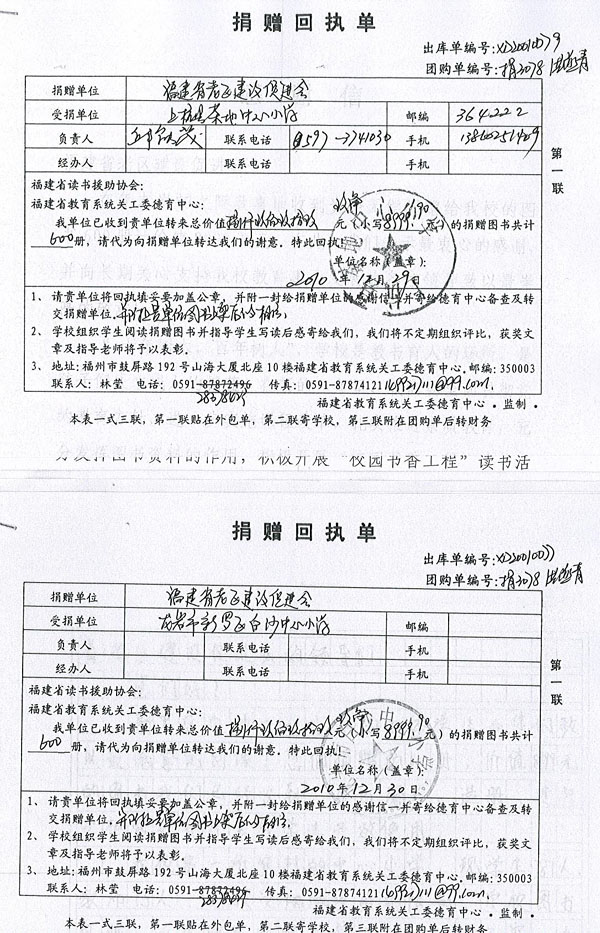 捐赠回执单
出库单编号:
团购单编号:捐3078
捐赠单位 福建省老区建设促进会
受捐单位 上杭县茶地中心小学 邮编 364222
负责人 联系电话 0597-3741030 手机
经办人 联系电话 手机
第一联
福建省读书援助协会:
福建省教育系统关工委德育中心:
我单位已收到贵单位转来总价值捌仟玖佰玖拾玖 元(小写8999.90元)的捐赠图书共计
600册,请代为向捐赠单位转达我们的谢意。特此回执!
单位名称(盖章):
2010年12月29日
1、请贵单位将回执填妥要加盖公章,并附一封给捐赠单位的感谢信一并寄给德育中心备查及转
交捐赠单位。
2、学校组织学生阅读捐赠图书并指导学生写读后感寄给我们,我们将不定期组织评比,获奖文
章及指导老师将予以表彰。
3、地址:福州市鼓屏路192号山海大厦北座10楼福建省教育系统关工委德育中心.邮编:350003
联系人:林莹 电话:0591-87872496 传真:0591-87874121
福建省教育系统关工委德育中心·监制·
本表一式三联,第一联贴在外包单,第二联寄学校,第三联附在团购单后转财务
分发挥图书资料的作用,积极开展“校园书香工程”读书活
捐赠回执单
出库单编号:
团购单编号:捐3078
捐赠单位 福建省老区建设促进会
受捐单位 龙岩市新罗区白沙中心小学 邮编
负责人 联系电话 手机
经办人 联系电话 手机
第一联
福建省读书援助协会:
福建省教育系统关工委德育中心:
我单位已收到贵单位转来总价值捌仟玖佰玖拾玖 元(小写8999.90元)的捐赠图书共计
600册,请代为向捐赠单位转达我们的谢意。特此回执!
单位名称(盖章):
2010年12月30日
1、请贵单位将回执填妥要加盖公章,并附一封给捐赠单位的感谢信一并寄给德育中心备查及转
交捐赠单位。
2、学校组织学生阅读捐赠图书并指导学生写读后感寄给我们,我们将不定期组织评比,获奖文
章及指导老师将予以表彰。
3、地址:福州市鼓屏路192号山海大厦北座10楼福建省教育系统关工委德育中心.邮编:350003
联系人:林莹 电话:0591-87872496 传真:0591-87874121
福建省教育系统关工委德育中心·监制·
本表一式三联,第一联贴在外包单,第二联寄学校,第三联附在团购单后转财务